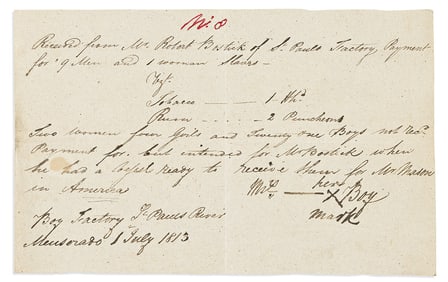 No. 8
Received from Mr. Robert Bostick of St. Pauls Factory, Payment
for 9 Men and 1 woman Slaves —
Viz.
Tobacco — 1 Hhd.
Rum — 2 Puncheons
Two women four Girls and Twenty one Boys not recd.
Payment for. but intended for Mr Bostick when
he had a vessel ready to receive them for Mr Mason
in America
her
X Boy
mark
Boy Factory St. Pauls River
Mensorado 1 July 1813